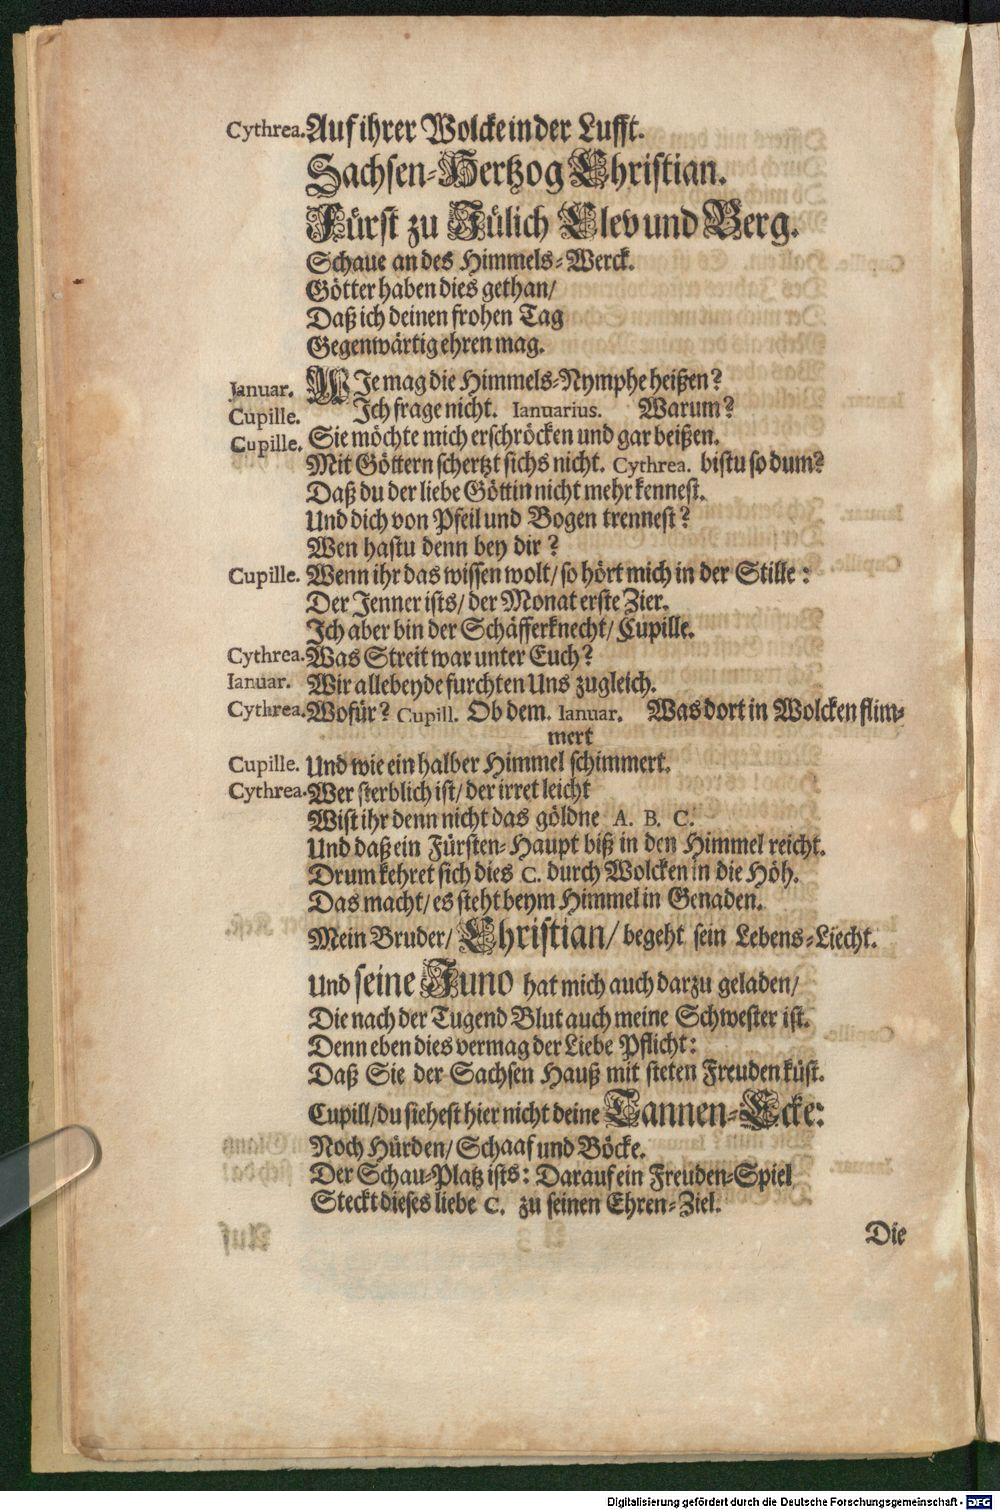 Cythrea. Auf ihrer Wolcke in der Lufft.
Sachsen-Hertzog Christian.
Fürst zu Jülich Clev und Berg.
Schaue an des Himmels-Werck.
Götter haben dies gethan/
Daß ich deinen frohen Tag
Gegenwärtig ehren mag.
Januar. WJe mag die Himmels-Nymphe heißen?
Cupille. Ich frage nicht. Ianuarius. Warum?
Cupille. Sie möchte mich erschröcken und gar beißen.
Mit Göttern schertzt sichs nicht. Cythrea. bistu so dum?
Daß du der liebe Göttin nicht mehr kennest.
Und dich von Pfeil und Bogen trennest?
Wen hastu denn bey dir?
Cupille. Wenn ihr das wissen wolt/ so hört mich in der Stille:
Der Jenner ists/ der Monat erste Zier.
Ich aber bin der Schäfferknecht/ Cupille.
Cythrea. Was Streit war unter Euch?
Ianuar. Wir alle beyde furchten Uns zugleich.
Cythrea. Wofür? Cupill. Ob dem. Ianuar. Was dort in Wolcken flim-
mert
Cupille. Und wie ein halber Himmel schimmert.
Cythrea. Wer sterblich ist/ der irret leicht
Wist ihr denn nicht das göldne A. B. C.
Und daß ein Fürsten-Haupt biß in den Himmel reicht.
Drum kehret sich dies C. durch Wolcken in die Höh.
Das macht/ es steht beym Himmel in Genaden.
Mein Bruder/ Christian/ begeht sein Lebens-Liecht.
Und seine Juno hat mich auch darzu geladen/
Die nach der Tugend Blut auch meine Schwester ist.
Denn eben dies vermag der Liebe Pflicht:
Daß Sie der Sachsen Hauß mit steten Freuden küst.
Cupill/ du siehest hier nicht deine Tannen-Ecke:
Noch Hürden/ Schaaf und Böcke.
Der Schau-Platz ists: Darauf ein Freuden-Spiel
Steckt dieses liebe C. zu seinen Ehren-Ziel.
Die
Digitalisierung gefördert durch die Deutsche Forschungsgemeinschaft - DFG